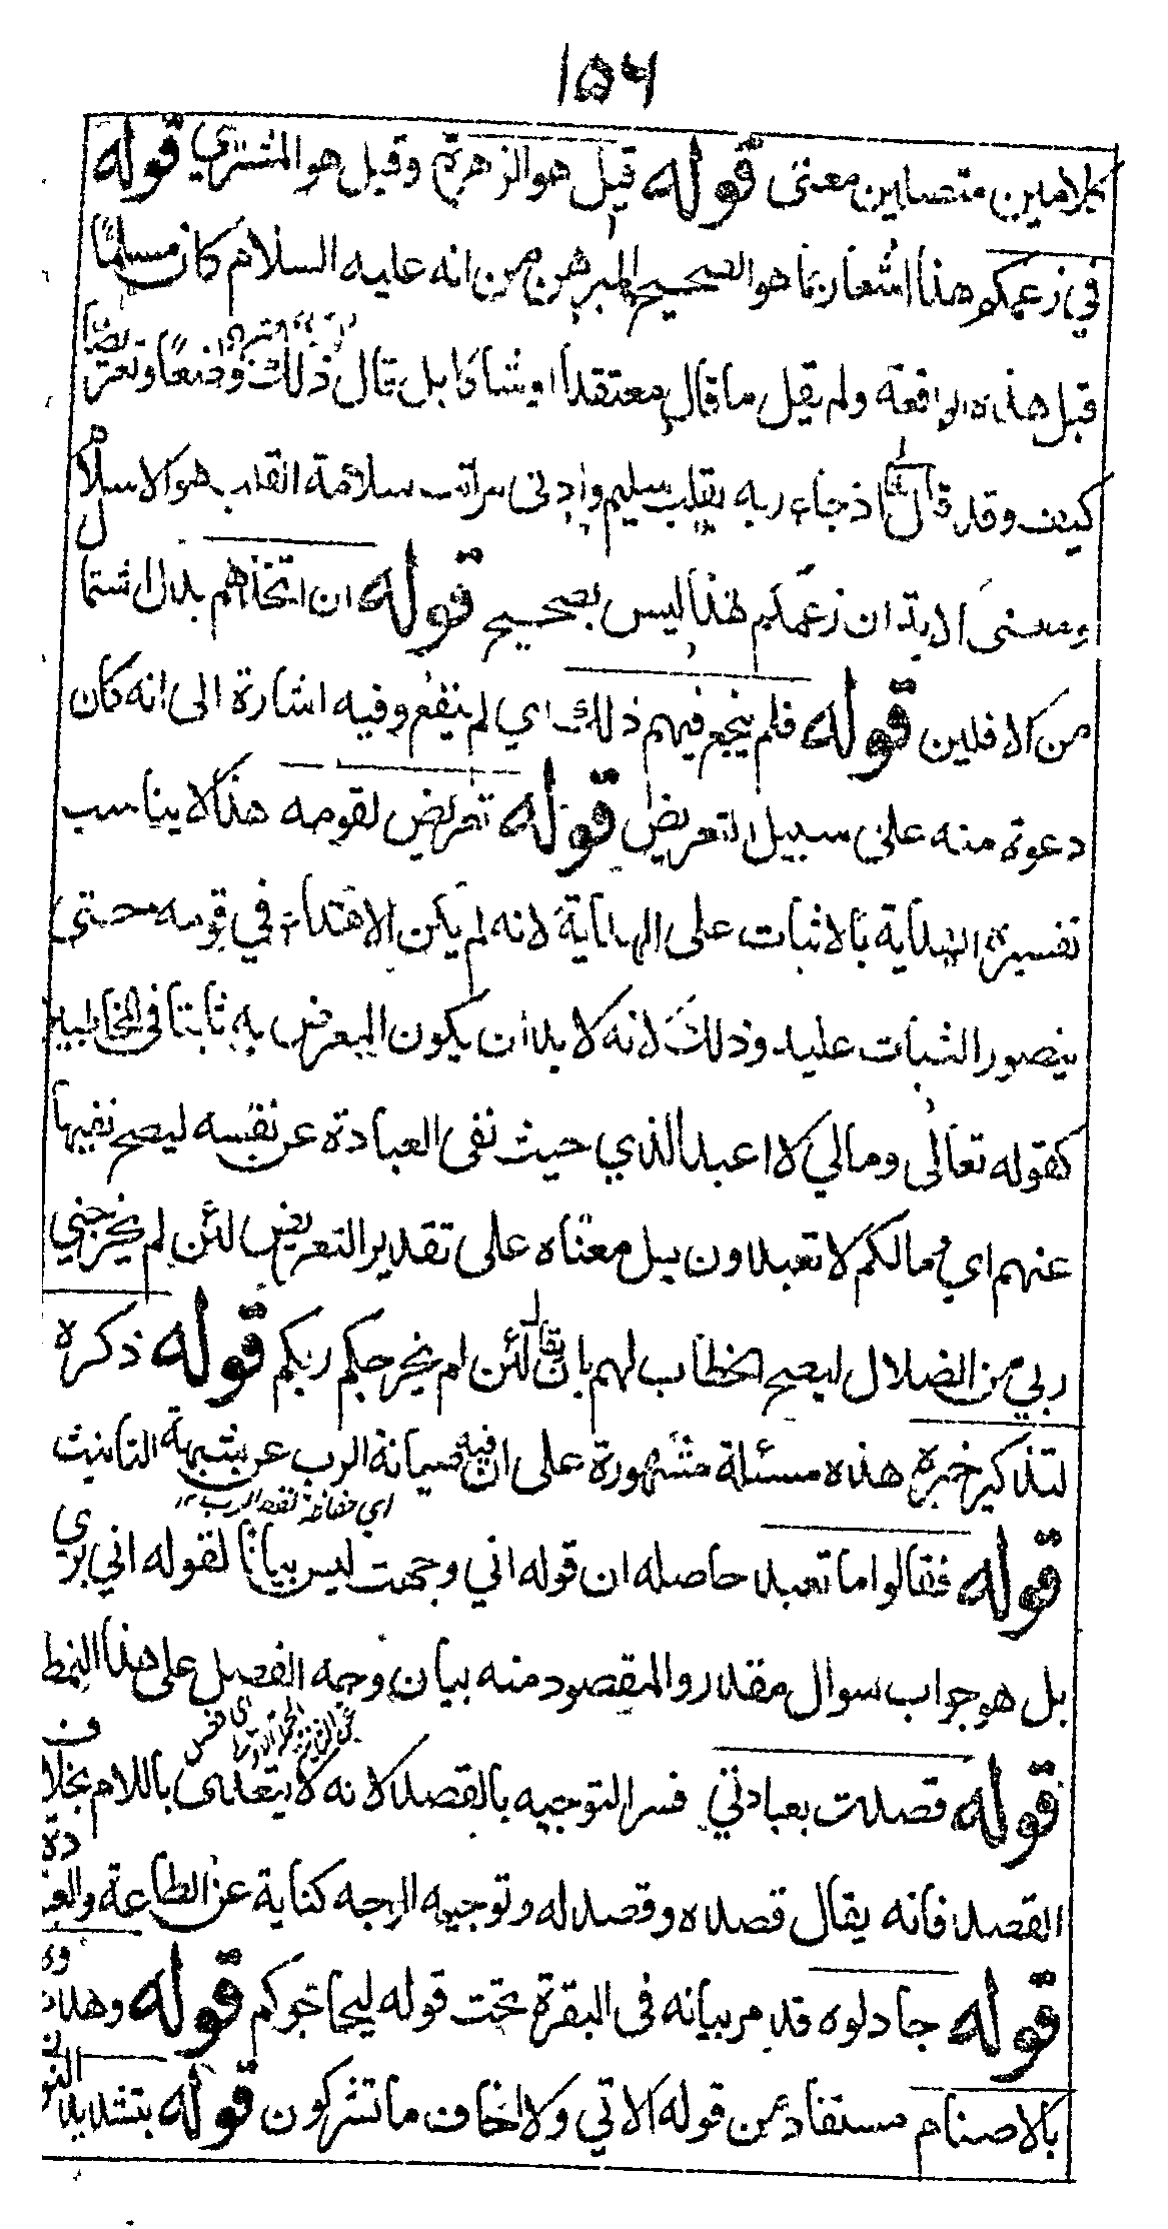 ١٥٦
كلامين متصلين معنى قوله قيل هو الزهرة وقيل هو المشتري قوله
في زعمكم هذا اشعار بما هو الصحيح المبرهن من انه عليه السلام كان مسلما
قبل هذه الواقعة ولم يقل ما قال معتقدا او شاكا بل قال ذلك وضعا وتعريضا
كيف وقد قال تعالى اذ جاء ربه بقلب سليم وادنى مراتب سلامة القلب هو الاسلام
ومعنى الاية ان زعمكم لهذا ليس بصحيح قوله ان اتخذهم بدل اشتمال
من الافلين قوله فلم ينجع فيهم ذلك اي لم ينفع وفيه اشارة الى انه كان
دعوة منه على سبيل التعريض قوله تعريض لقومه هذا لا يناسب
تفسيره الهداية بالاثبات على الهداية لانه لم يكن الاهتداء في قومه حتى
يتصور الثبات عليه وذلك لانه لا بد ان يكون المعرض به ثابتا في المخاطبين
كقوله تعالى ومالي لا اعبد الذي حيث نفى العبادة عن نفسه ليصح نفيها
عنهم اي مالكم لا تعبدون بل معناه على تقدير التعريض لئن لم يخرجني
ربي من الضلال ليصح الخطاب لهم بان يقال لئن لم يخرجكم ربكم قوله ذكره
لتذكير خبره هذه مسئلة مشهورة على ان فيه صيانة الرب عن شبهة التانيث
اي حفاظة لفظ الرب ١٢
قوله فقالوا ما تعبد حاصله ان قوله اني وجهت ليس بيانا لقوله اني بري
بل هو جواب سوال مقدر والمقصود منه بيان وجه الفصل على هذا النمط
قوله قصدت بعبادتي فسر التوجيه بالقصد لانه لا يتعدى باللام بخلاف
القصد فانه يقال قصده وقصد له وتوجيه الوجه كناية عن الطاعة والعبادة
قوله جادلوه قد مر بيانه في البقرة تحت قوله ليحاجوكم قوله وهددوه
بالاصنام مستفاد من قوله الاتي ولا اخاف ما تشركون قوله بتشديد النون